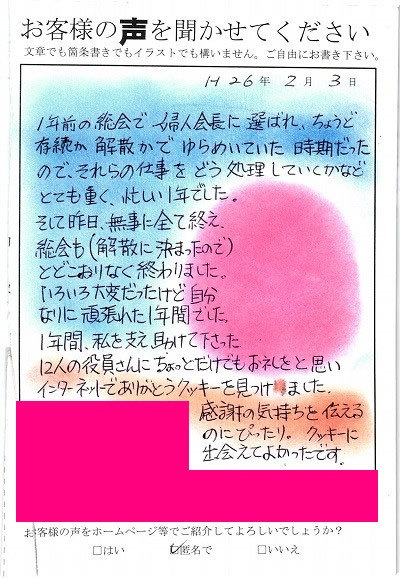 お客様の声を聞かせてください
文章でも箇条書きでもイラストでも構いません。ご自由にお書き下さい。
H26年 2月 3日
1年前の総会で 婦人会長に 選ばれ、ちょうど
存続か 解散かで ゆらめいていた 時期だった
ので、それらの仕事を どう 処理していくかなど
とても重く、忙しい1年でした。
そして昨日、無事に全て終え、
総会も(解散に決まったので)
とどこおりなく 終わりました。
いろいろ大変だったけど 自分
なりに頑張れた1年間でした。
1年間、私を支え助けて下さった
12人の役員さんに ちょっとだけでもお礼をと思い
インターネットでありがとうクッキーを見つけました。
感謝の気持ちを伝える
のにぴったり。 クッキーに
出会えてよかったです。
お客様の声をホームページ等でご紹介してよろしいでしょうか?
□はい ☑匿名で □いいえ